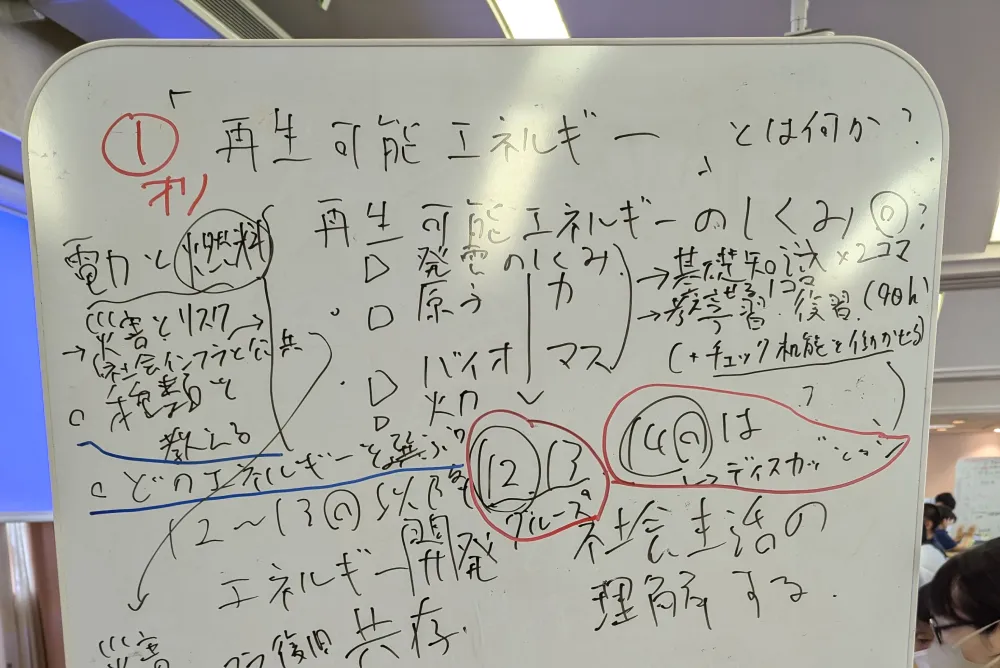 ① 再生可能エネルギー とは何か?
オリ
再生可能エネルギーのしくみ ?
電力と燃料
▷ 発電のしくみ
→基礎知識×2コマ
災害とリスク→
▷ 原子力
復習. (90h)
→社会インフラと公共
(+チェック機能を働かせる)
▷ バイオマス
教える
▷ 火力
どのエネルギーを選ぶか
⑫ 13
グループ
14 は
↳ディスカッション
12～13 以降
エネルギー開発
社会生活の
理解する.
共存.
災害